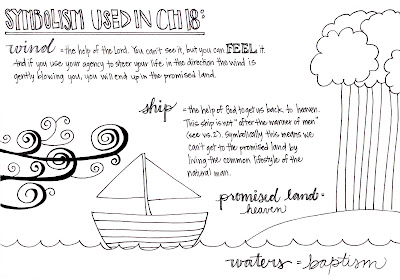 SYMBOLISM USED IN CH 18:
wind = the help of the Lord. You can't see it, but you can FEEL it.
And if you use your agency to steer your life in the direction the wind is
gently blowing you, you will end up in the promised land.
ship = the help of God to get us back to heaven.
This ship is not "after the manner of men"
(see vs. 2). Symbolically this means we
can't get to the promised land by
living the common lifestyle of the
natural man.
promised land =
heaven
waters = baptism